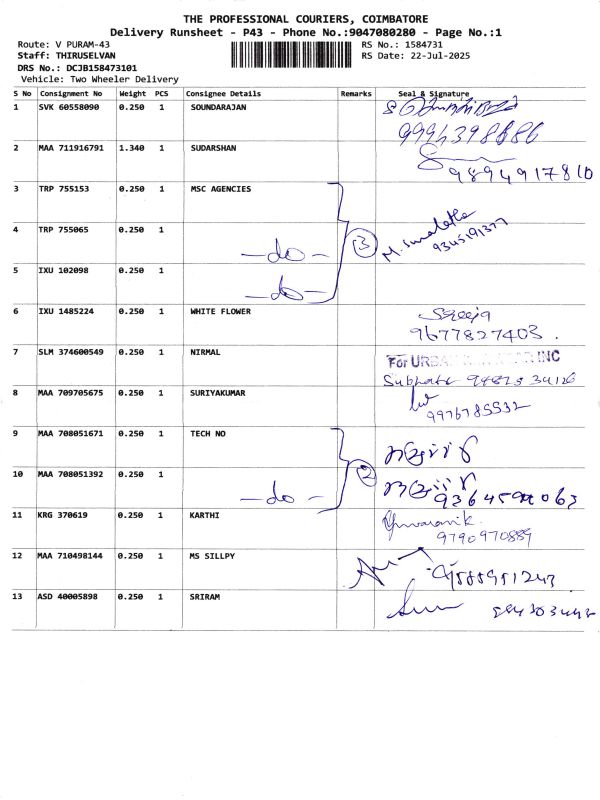 THE PROFESSIONAL COURIERS, COIMBATORE
Delivery Runsheet - P43 - Phone No.:9047080280 - Page No.:1
Route: V PURAM-43 RS No.: 1584731
Staff: THIRUSELVAN RS Date: 22-Jul-2025
DRS No.: DCJB158473101
Vehicle: Two Wheeler Delivery
S No Consignment No Weight PCS Consignee Details Remarks Seal & Signature
1 SVK 60558090 0.250 1 SOUNDARAJAN
2 MAA 711916791 1.340 1 SUDARSHAN 9894917810
3 TRP 755153 0.250 1 MSC AGENCIES
4 TRP 755065 0.250 1 -do- 3 9345191377
5 IXU 102098 0.250 1 -do-
6 IXU 1485224 0.250 1 WHITE FLOWER Sreeja
9677827403.
7 SLM 374600549 0.250 1 NIRMAL For URBAN INC
8 MAA 709705675 0.250 1 SURIYAKUMAR
9976785532
9 MAA 708051671 0.250 1 TECH NO
10 MAA 708051392 0.250 1 -do- 2
11 KRG 370619 0.250 1 KARTHI
9790970889
12 MAA 710498144 0.250 1 MS SILLPY
13 ASD 40005898 0.250 1 SRIRAM